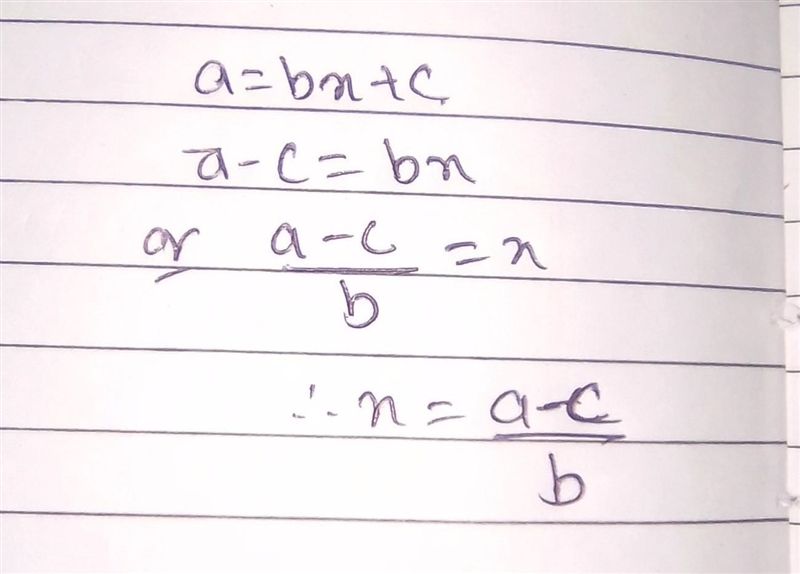 a=bx+c
a-c=bx
or a-c/b =x
∴x= a-c/b